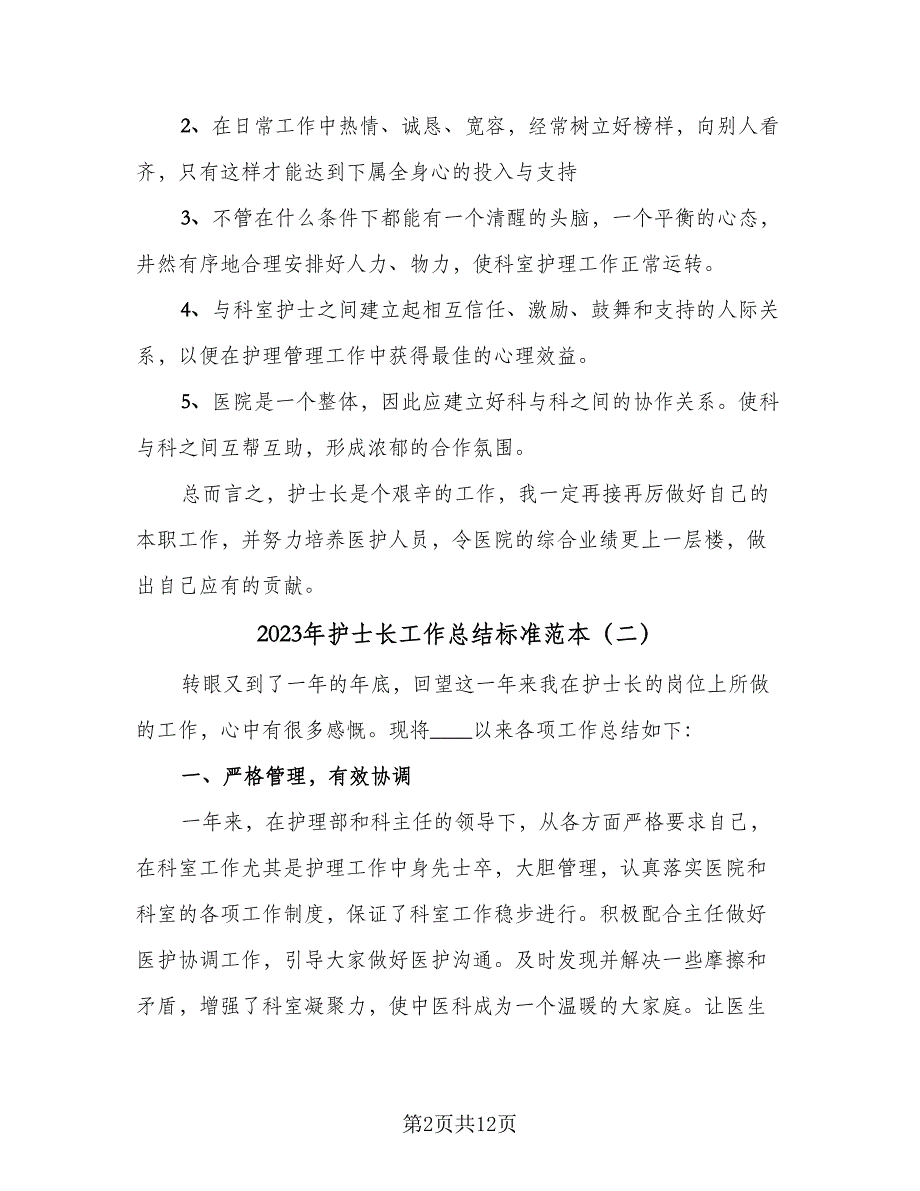 2、在日常工作中热情、诚恳、宽容，经常树立好榜样，向别人看
齐，只有这样才能达到下属全身心的投入与支持
3、不管在什么条件下都能有一个清醒的头脑，一个平衡的心态，
井然有序地合理安排好人力、物力，使科室护理工作正常运转。
4、与科室护士之间建立起相互信任、激励、鼓舞和支持的人际关
系，以便在护理管理工作中获得最佳的心理效益。
5、医院是一个整体，因此应建立好科与科之间的协作关系。使科
与科之间互帮互助，形成浓郁的合作氛围。
总而言之，护士长是个艰辛的工作，我一定再接再厉做好自己的
本职工作，并努力培养医护人员，令医院的综合业绩更上一层楼，做
出自己应有的贡献。
2023年护士长工作总结标准范本（二）
转眼又到了一年的年底，回望这一年来我在护士长的岗位上所做
的工作，心中有很多感慨。现将____以来各项工作总结如下：
一、严格管理，有效协调
一年来，在护理部和科主任的领导下，从各方面严格要求自己，
在科室工作尤其是护理工作中身先士卒，大胆管理，认真落实医院和
科室的各项工作制度，保证了科室工作稳步进行。积极配合主任做好
医护协调工作，引导大家做好医护沟通。及时发现并解决一些摩擦和
矛盾，增强了科室凝聚力，使中医科成为一个温暖的大家庭。让医生
第2页共12页